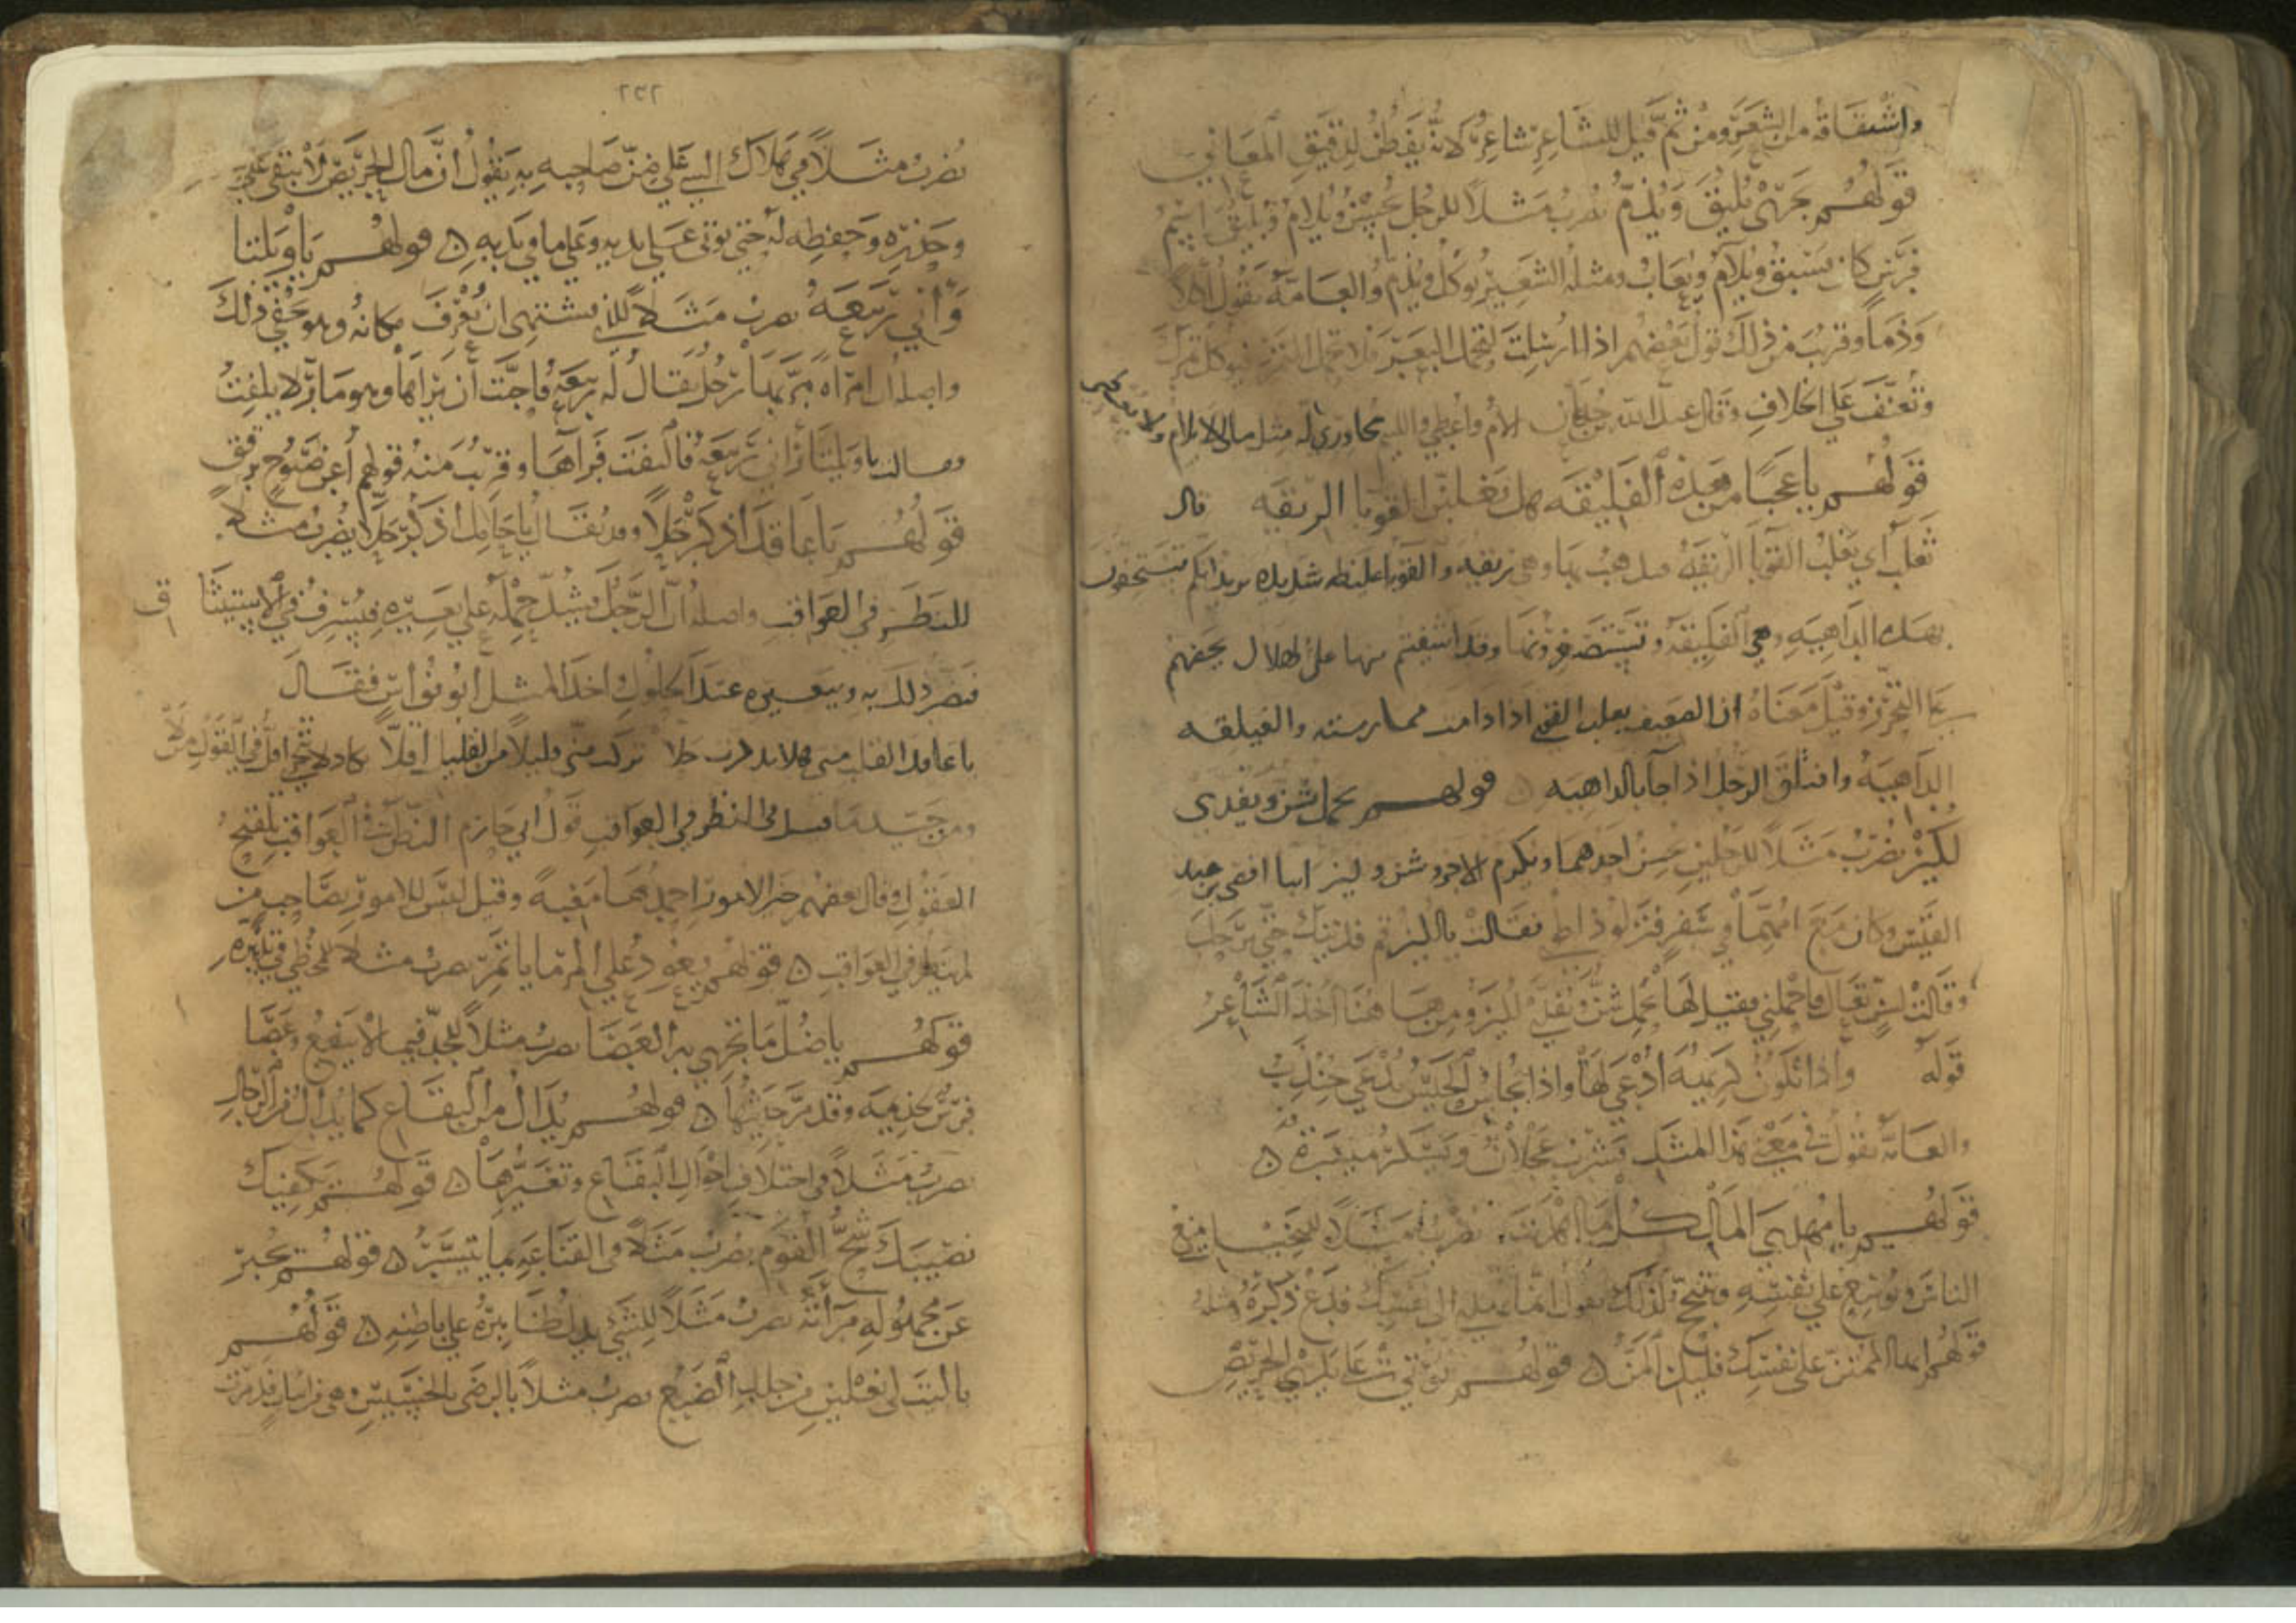 واشتقاقه من الشعر ومن ثم قيل للشاعر شاعر لانه يفطن لدقيق المعاني
قولهم يجري بليق ويذم يضرب مثلا للرجل يحسن ويلام وبليق اسم
فرس كان يسبق ويلام ويعاب ومثله الشعير يوكل ويذم والعامة تقول اكلا
وذما وقريب من ذلك قول بعضهم اذا ارسلت لتحمل البعر فلا تحمل التمر فيوكل تمرك
وتعنف على الخلاف وقال عبد الله بن الام واعطي والبخيل مجاوري له مثل مالي لا يلام ولا يعطي
قولهم يا عجبا من هذه الفليقه هل تغلبن القوبا الريقه قال
ثعلب اي يغلب القوبا الريقه وهي ريقه والقوبا غليظه شديده يريد انكم تستخفون
بهذه الداهيه وهي الفليقه وتستصغرونها وقد اشفيتم منها على الهلاك يحضهم
التحرز وقيل معناه ان الضعيف يغلب القوي اذا دامت ممارسته والفليقه
الداهيه وافتلق الرجل اذا جا بالداهيه ٥ قولهم يحمل شن ويفدى
لكيز يضرب مثلا للرجلين يهين احدهما ويكرم الاخر وشن ولكيز ابنا افصى بن عبد
القيس وكان مع امهما في سفر فنزلوا ذا طوى فقالت يا لكيز قم فديتك حتى نرحل
وقالت لشن تعال فاحملني فقيل لها يحمل شن ويفدى لكيز ومن هاهنا اخذ الشاعر
قوله واذا تكون كريهة ادعى لها واذا يحاس الحيس يدعى جندب
والعامة تقول في معنى هذا المثل يشرب عجلان ويسكر ميسره ٥
قولهم يا مهدي المال كل ما اهديت يضرب مثلا للبخيل يمنع
الناس ويوسع على نفسه ويتبجح لذلك يقول انما تهديه الى نفسك فدع ذكره ومثله
قولهم ايها الممتن على نفسك فليكن المن ٥ قولهم يوتى على يدي الحريص
٢٥٢
يضرب مثلا في هلاك الشي على ضن صاحبه به يقول ان مال الحريص لا يبقى على
وحذره وحفظه له حتى يوتى على يديه وعلى ما في يديه ٥ قولهم يا ويلتا
راني ربيعه يضرب مثلا للذي يشتهي ان يعرف مكانه وهو يخفي ذلك
واصله ان امراه مر بها رجل يقال له ربيعه فاحبت ان يراها وهو مار لا يلتفت
فقالت يا ويلتا راني ربيعه فالتفت فراها وقريب منه قولهم اعن صبوح ترقق
قولهم يا عاقد اذكر حلا وقد يقال يا حامل اذكر حلا يضرب مثلا
للنظر في العواقب واصله ان الرجل يشد حمله على بعيره فيسرف في الاستيثا ق
فيضر ذلك به وببعيره عند الحلول اخذ المثل ابو نواس فقال
يا عاقد القلب مني هلا تذكرت حلا تركت مني قليلا من القليل اقلا يكاد لا يتجزا اقل في القول من لا
ومن جيد ما قيل في النظر في العواقب قول ابي حازم النظر في العواقب تلقيح
العقول وقال بعضهم خير الامور احمدها مغبة وقيل ليس للامور بصاحب من
لم ينظر في العواقب ٥ قولهم يعود على المر ما ياتمر يضرب مثلا للمخطي في تدبيره
قولهم يا ضل ما تجري به العصا يضرب مثلا للجد فيما لا ينفع وعصا
فرس جذيمه وقد مر حديثها ٥ قولهم يدال من البقاع كما يدال من الرجال
يضرب مثلا في اختلاف احوال البقاع وتغيرها ٥ قولهم يكفيك
نصيبك شح القوم يضرب مثلا في القناعه بما تيسر ٥ قولهم يخبر
عن مجهوله مرآته يضرب مثلا للشي يدل ظاهره على باطنه ٥ قولهم
يا ليت لي نعلين من جلد الضبع يضرب مثلا بالرضى بالخسيس